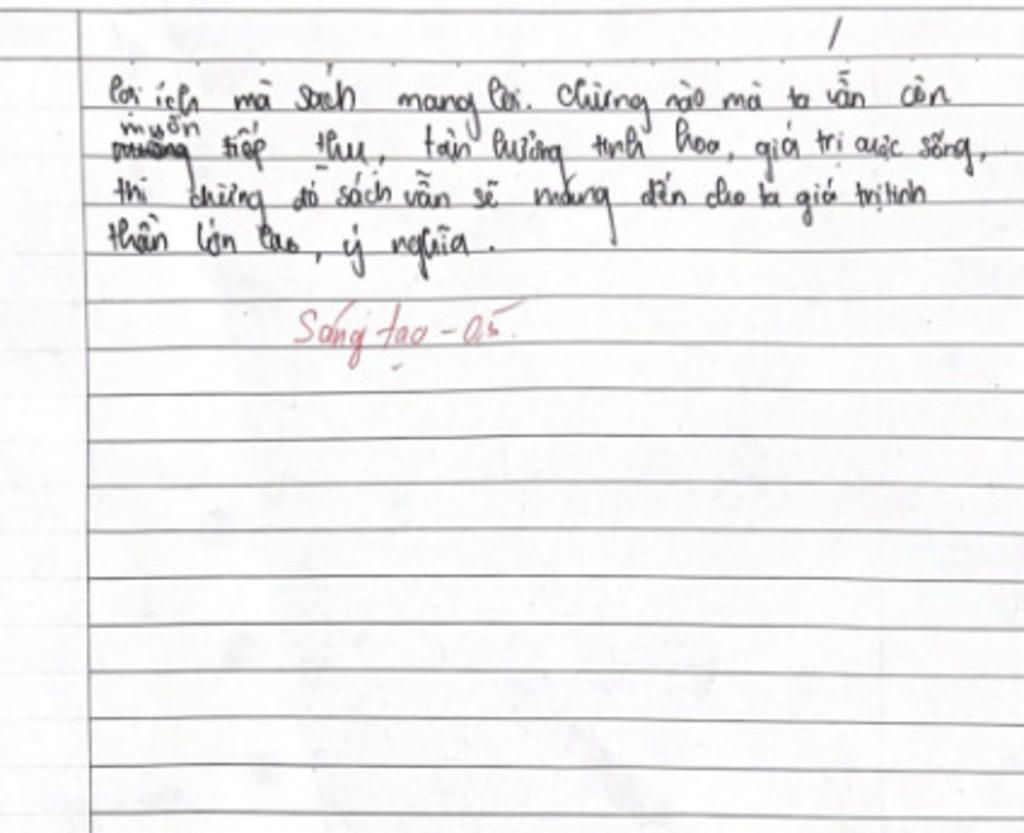 lợi ích mà sách mang lại. Chừng nào mà ta vẫn còn
muốn
tiếp thu, tận hưởng tinh hoa, giá trị cuộc sống,
thì chừng đó sách vẫn sẽ mang đến cho ta giá trị tinh
thần lớn lao, ý nghĩa.
Sáng tạo - 0,5